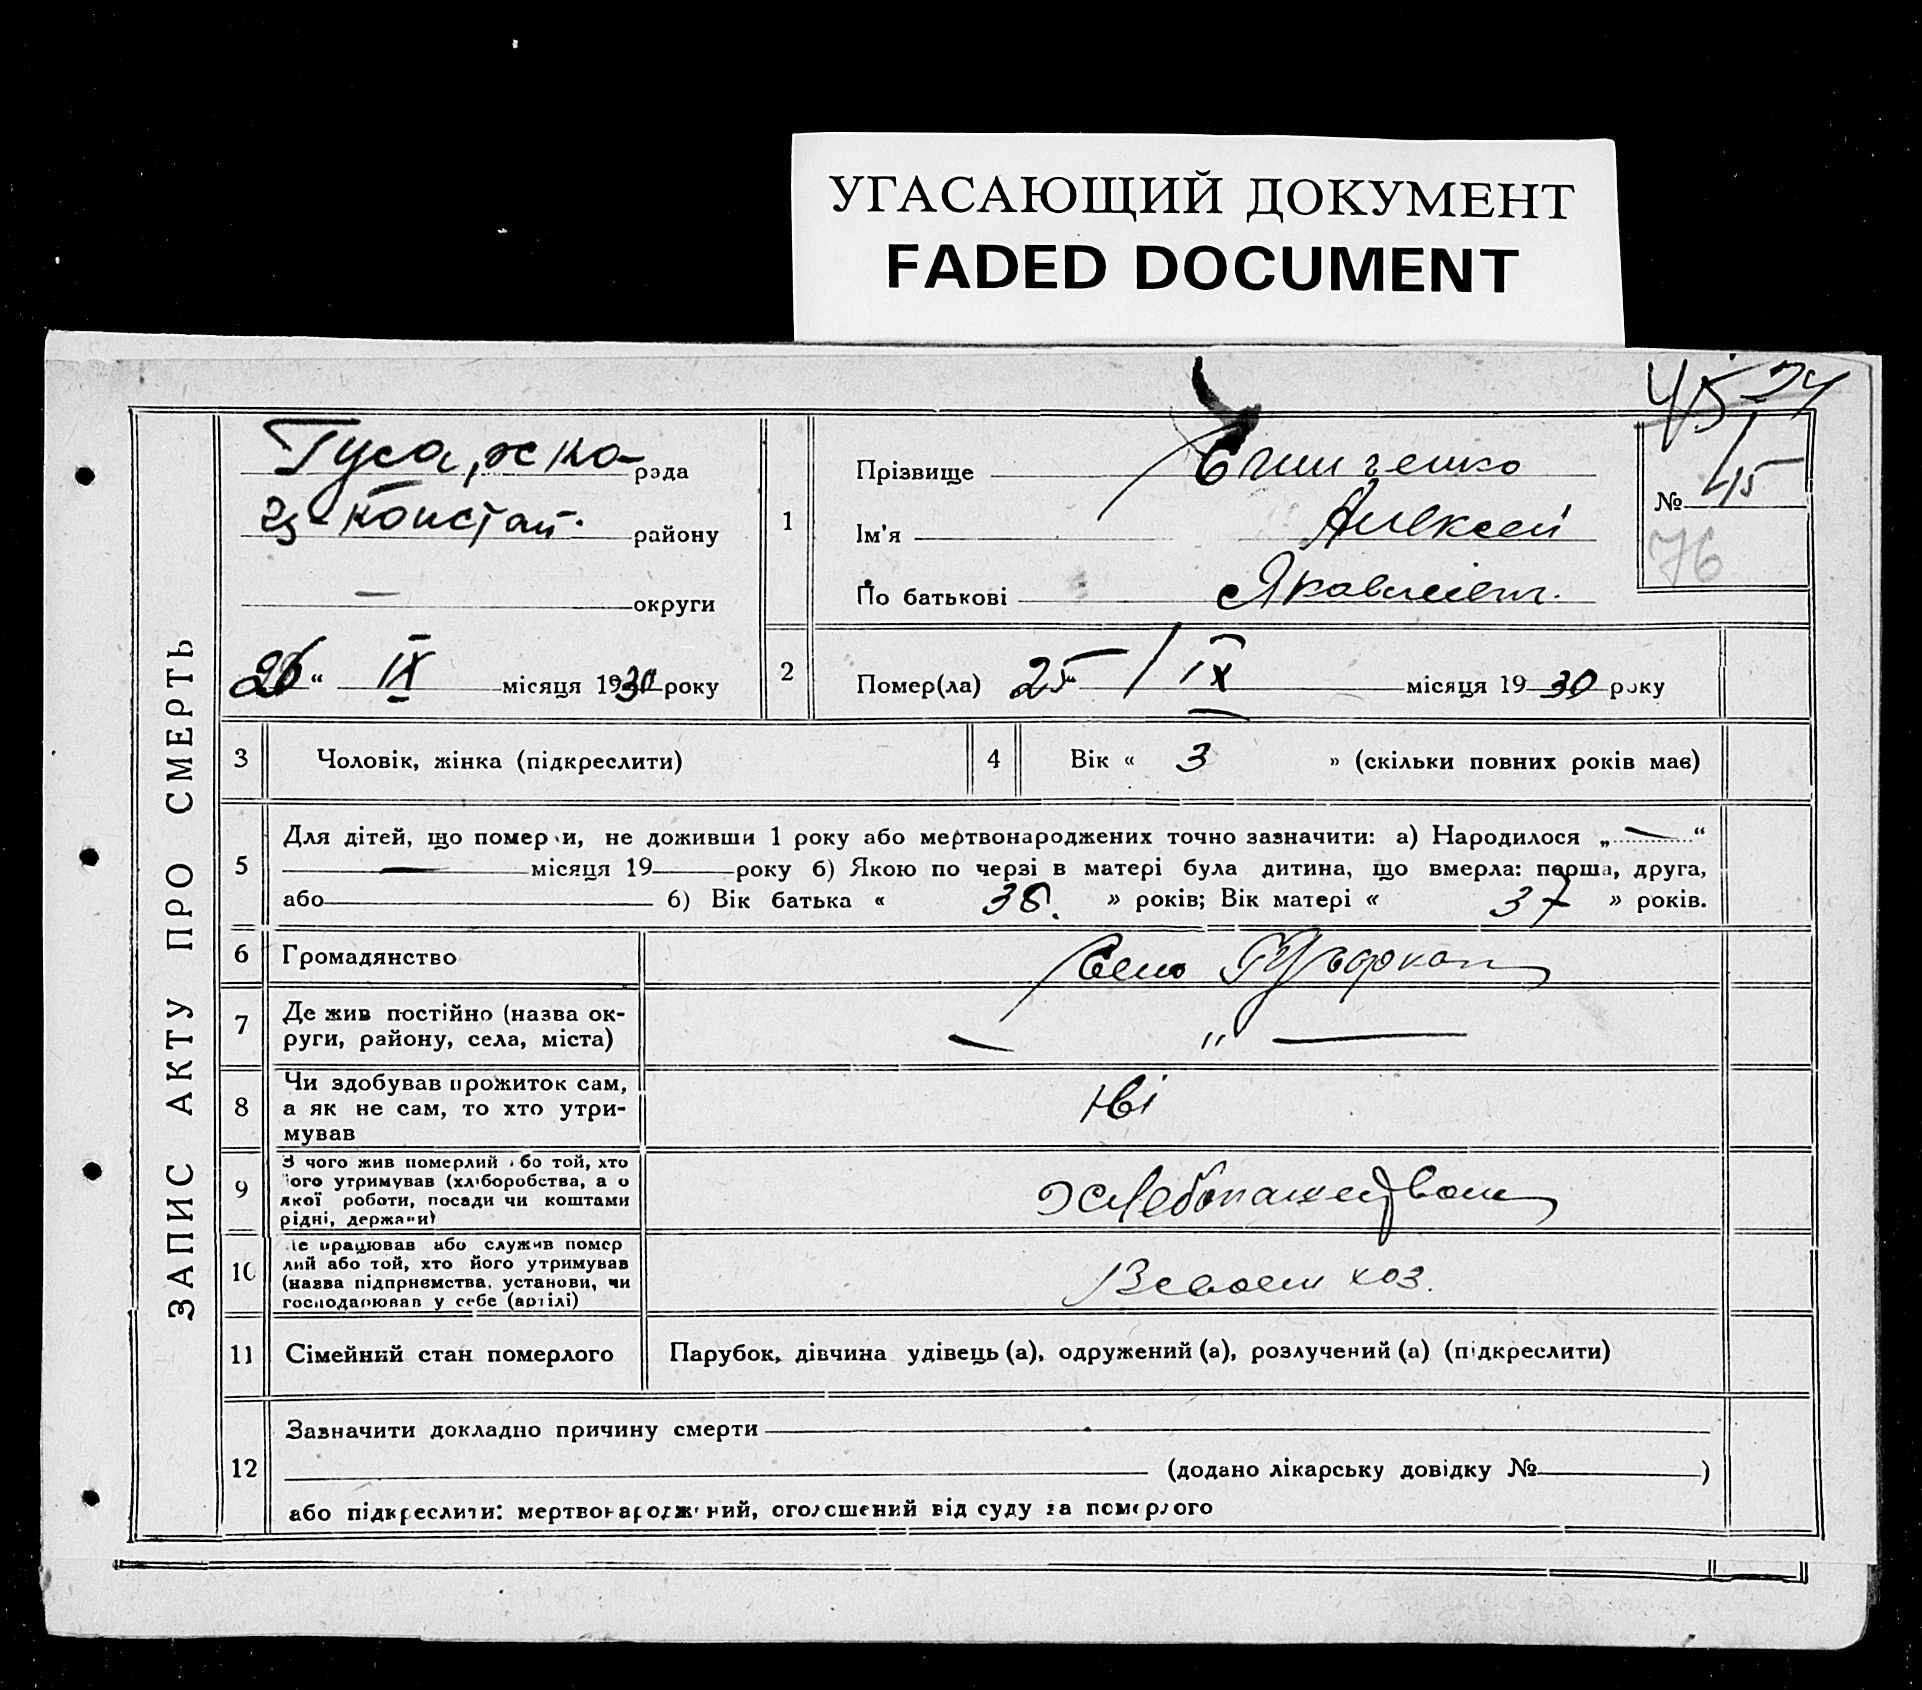 УГАСАЮЩИЙ ДОКУМЕНТ
FADED DOCUMENT
ЗАПИС АКТУ ПРО СМЕРТЬ
рада
району
— округи
26 “ IX місяця 1930 року
45
№ 45
76
1
Прізвище
Ім'я Алексей
По батькові
2
Помер(ла) 25 / IX місяця 1930 року
3 Чоловік, жінка (підкреслити)
4 Вік « 3 » (скільки повних років має)
5
Для дітей, що померли, не доживши 1 року або мертвонароджених точно зазначити: а) Народилося „ — “
— місяця 19 року б) Якою по черзі в матері була дитина, що вмерла: перша, друга,
або б) Вік батька « 38. » років; Вік матері « 37 » років.
6 Громадянство
7
Де жив постійно (назва ок-
руги, району, села, міста)
— „ —
8
Чи здобував прожиток сам,
а як не сам, то хто утри-
мував
Ні
9
З чого жив померлий або той, хто
його утримував (хліборобства, або
якої роботи, посади чи коштами
рідні, держави)
Хлебопашеством
10
Де працював або служив помер
лий або той, хто його утримував
(назва підприємства, установи, чи
господарював у себе (артілі)
В своем хоз.
11 Сімейний стан померлого
Парубок, дівчина удівець (а), одружений (а), розлучений (а) (підкреслити)
12
Зазначити докладно причину смерти
(додано лікарську довідку № )
або підкреслити: мертвонароджений, оголошений від суду за померлого